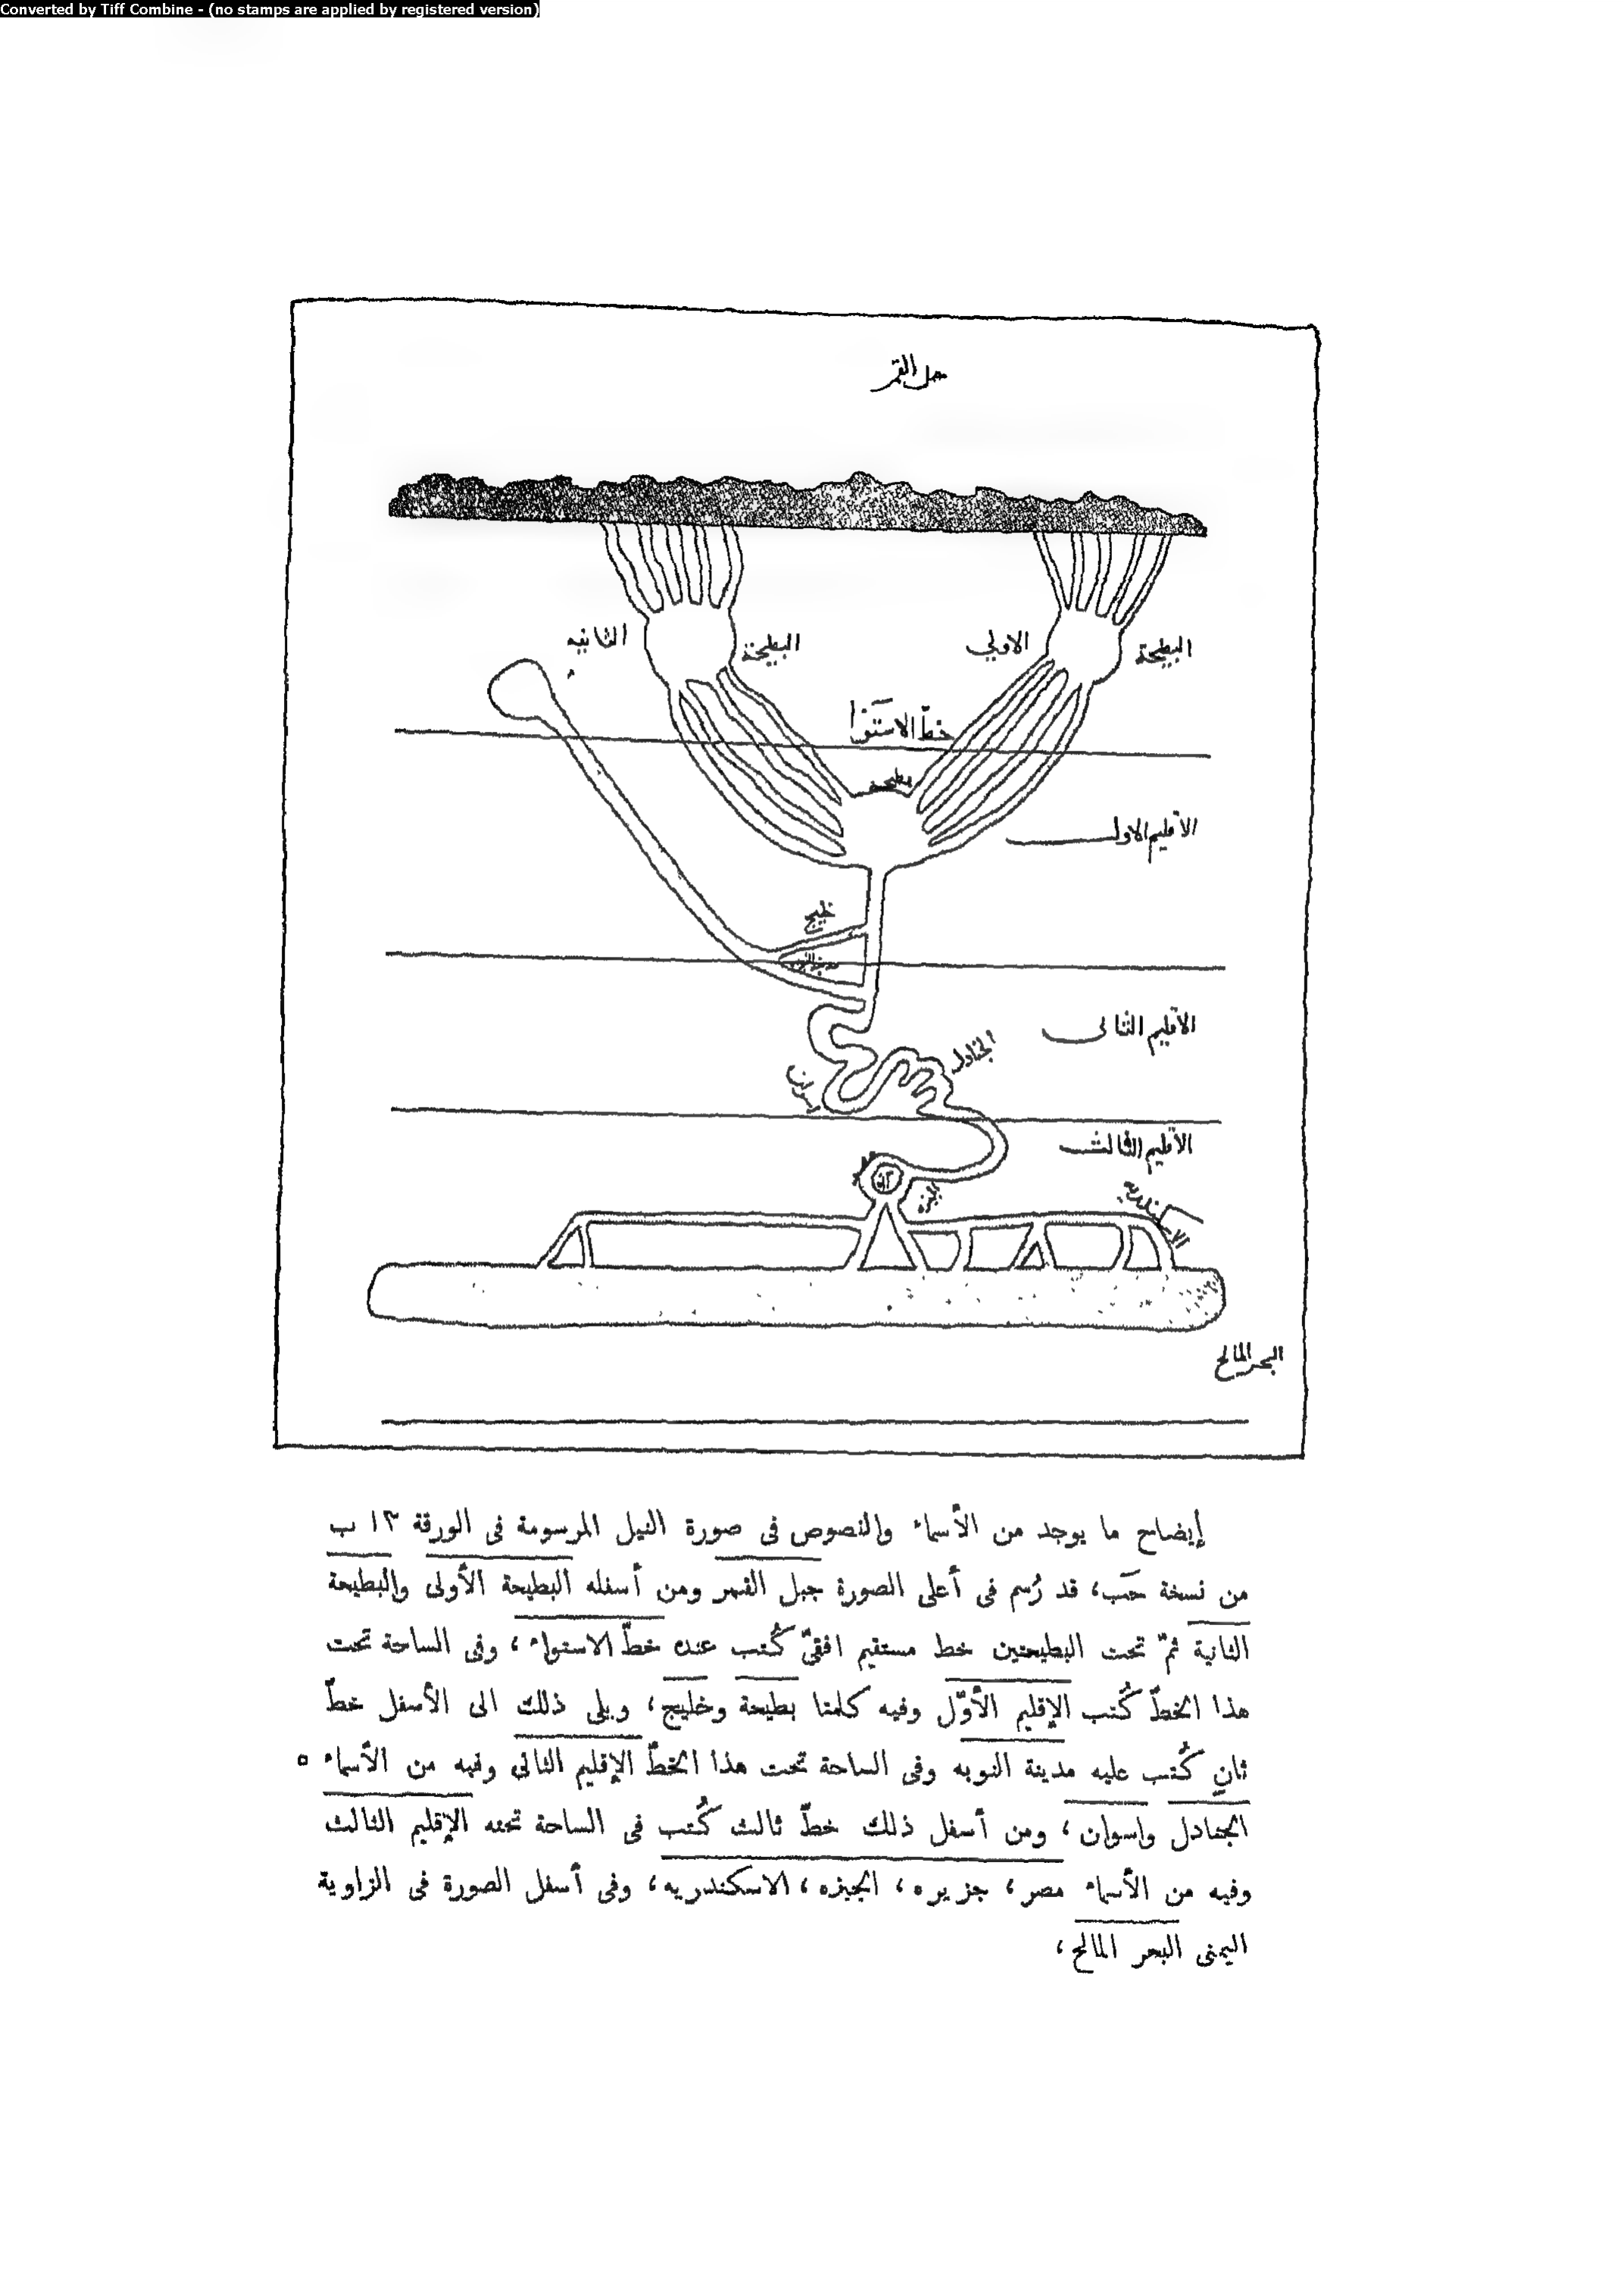 Converted by Tiff Combine - (no stamps are applied by registered version)
جبل القمر
البطيحة الاولي
البطيحة الثانيه
خطّ الاستوا
بطيحه
الاقليم الاول
خليج
مدينة النوبه
الاقليم الثانى
الجنادل
اسوان
الاقليم الثالث
الجيزه
الاسكندريه
البحر المالح
إيضاح ما يوجد من الأسماء والنصوص فى صورة النيل المرسومة فى الورقة ١٣ ب
من نسخة حَب، قد رُسم فى أعلى الصورة جبل القمر ومن أسفله البطيحة الأولى والبطيحة
الثانية ثمّ تحت البطيحتين خط مستقيم افقىّ كُتب عنده خطّ الاستواء، وفى الساحة تحت
هذا الخطّ كُتب الإقليم الأوّل وفيه كلمتا بطيحة وخليج، ويلى ذلك الى الأسفل خطّ
ثانٍ كُتب عليه مدينة النوبه وفى الساحة تحت هذا الخطّ الإقليم الثانى وفيه من الأسماء ٥
الجنادل واسوان، ومن أسفل ذلك خطّ ثالث كُتب فى الساحة تحته الإقليم الثالث
وفيه من الأسماء مصر، جزيره، الجيزه، الاسكندريه، وفى أسفل الصورة فى الزاوية
اليمنى البحر المالح،